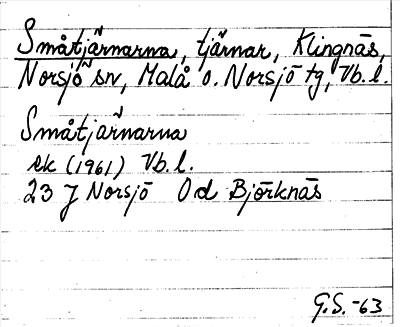 Småtjärnarna, tjärnar, Klingnäs,
Norsjö sn, Malå o. Norsjö tg, Vb. l.
Småtjärnarna
ek (1961) Vb. l.
23 J Norsjö Od Björknäs
G.S. -63